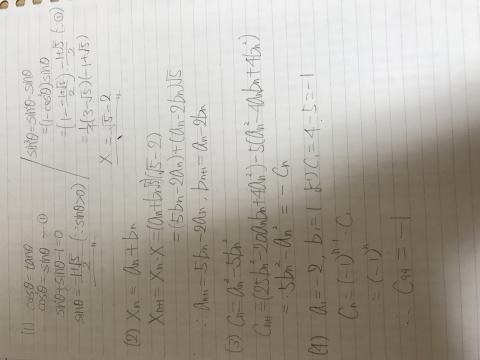 (1) cosθ = tanθ
cos²θ = sinθ ―①
sin²θ + sinθ - 1 = 0
sinθ = (-1+√5)/2 (∵ sinθ > 0)
sin³θ = sin²θ · sinθ
= (1 - cos²θ) sinθ
= (1 - (-1+√5)/2) · (-1+√5)/2 (∵ ①)
= 1/4 (3-√5)(-1+√5)
X = √5 - 2
(2) Xn = an + bn
Xn+1 = Xn · X = (an + bn√5)(√5 - 2)
= (5bn - 2an) + (an - 2bn)√5
∴ an+1 = 5bn - 2an, bn+1 = an - 2bn
(3) Cn = an² - 5bn²
Cn+1 = (25bn² - 20anbn + 4an²) - 5(an² - 4anbn + 4bn²)
= 5bn² - an² = -Cn
(4) a1 = -2, b1 = 1 より C1 = 4 - 5 = -1
Cn = (-1)ⁿ⁻¹ · C1
= (-1)ⁿ
∴ C99 = -1